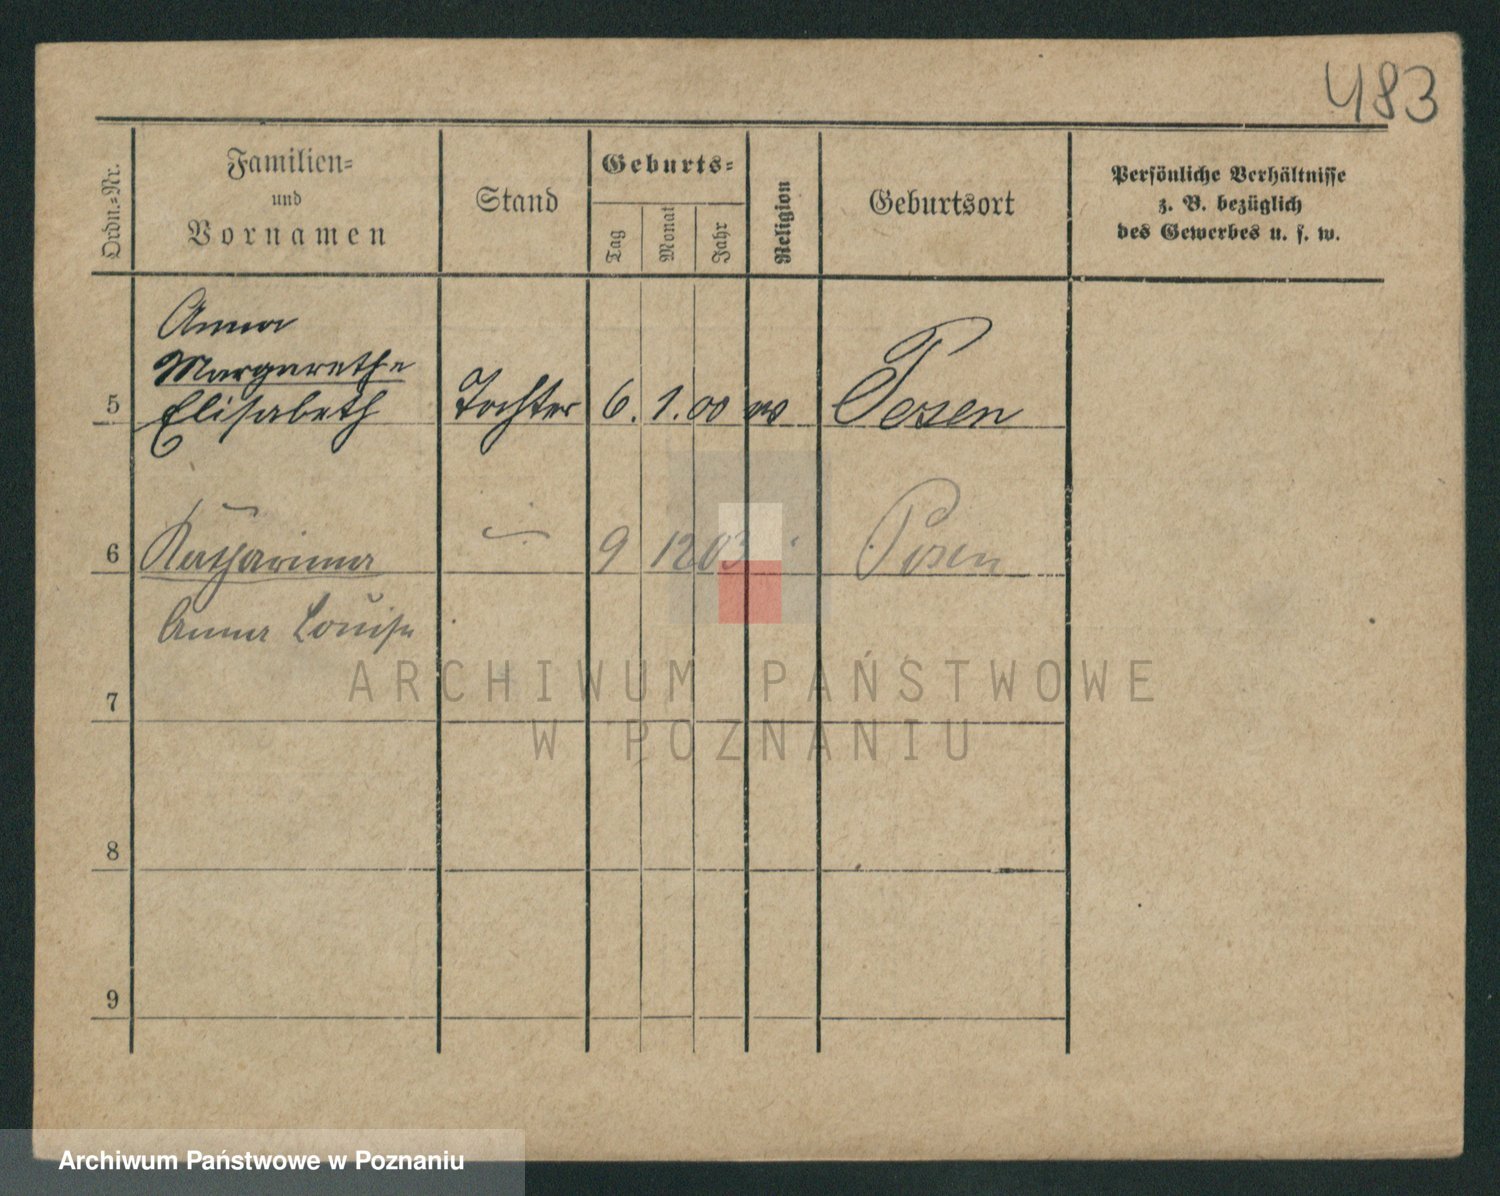 483
Ordn.-Nr.
Familien-
und
Vornamen
Stand
Geburts-
Tag
Monat
Jahr
Religion
Geburtsort
Persönliche Verhältnisse
z. B. bezüglich
des Gewerbes u. s. w.
Anna
Margarethe
5 Elisabeth Tochter 6. 1. 00 Posen
6 Katharina 9 12 03 Posen
Anna Louise
7
8
9
ARCHIWUM PAŃSTWOWE
W POZNANIU
Archiwum Państwowe w Poznaniu